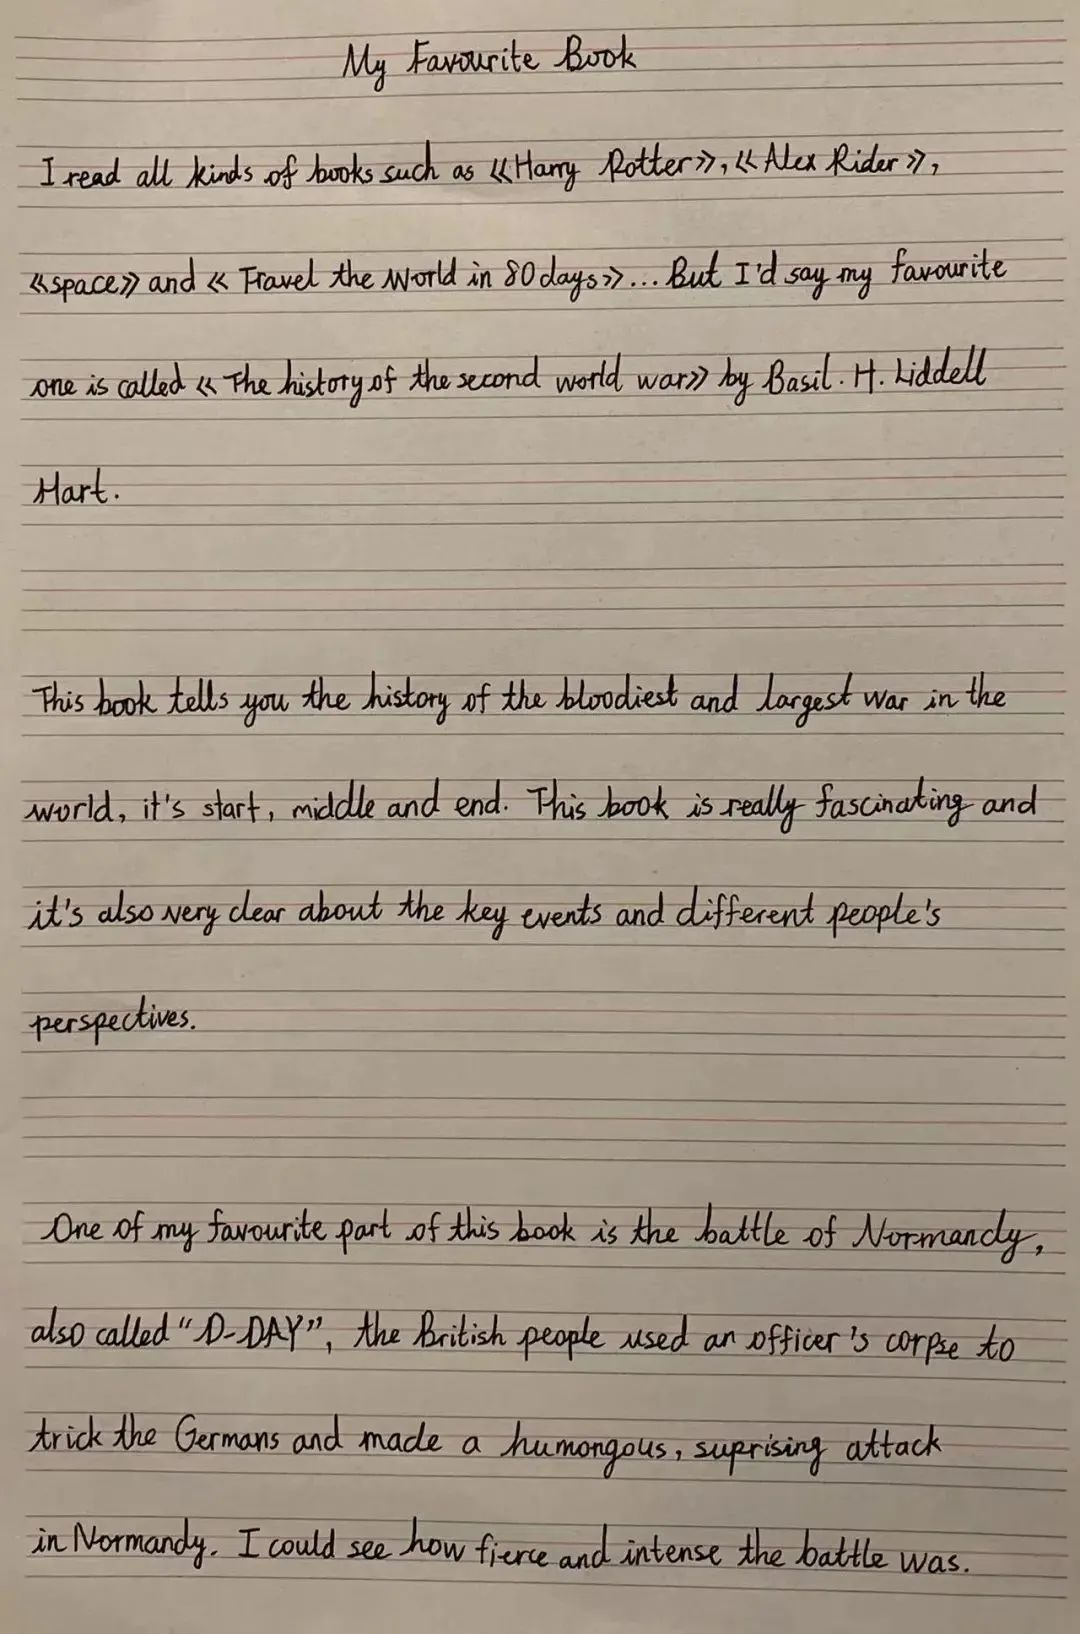 My Favourite Book
I read all kinds of books such as 《Harry Potter》, 《Alex Rider》,
《space》 and 《Travel the World in 80 days》... But I'd say my favourite
one is called 《The history of the second world war》 by Basil. H. Liddell
Hart.
This book tells you the history of the bloodiest and largest war in the
world, it's start, middle and end. This book is really fascinating and
it's also very clear about the key events and different people's
perspectives.
One of my favourite part of this book is the battle of Normandy,
also called "D-DAY", the British people used an officer's corpse to
trick the Germans and made a humongous, suprising attack
in Normandy. I could see how fierce and intense the battle was.